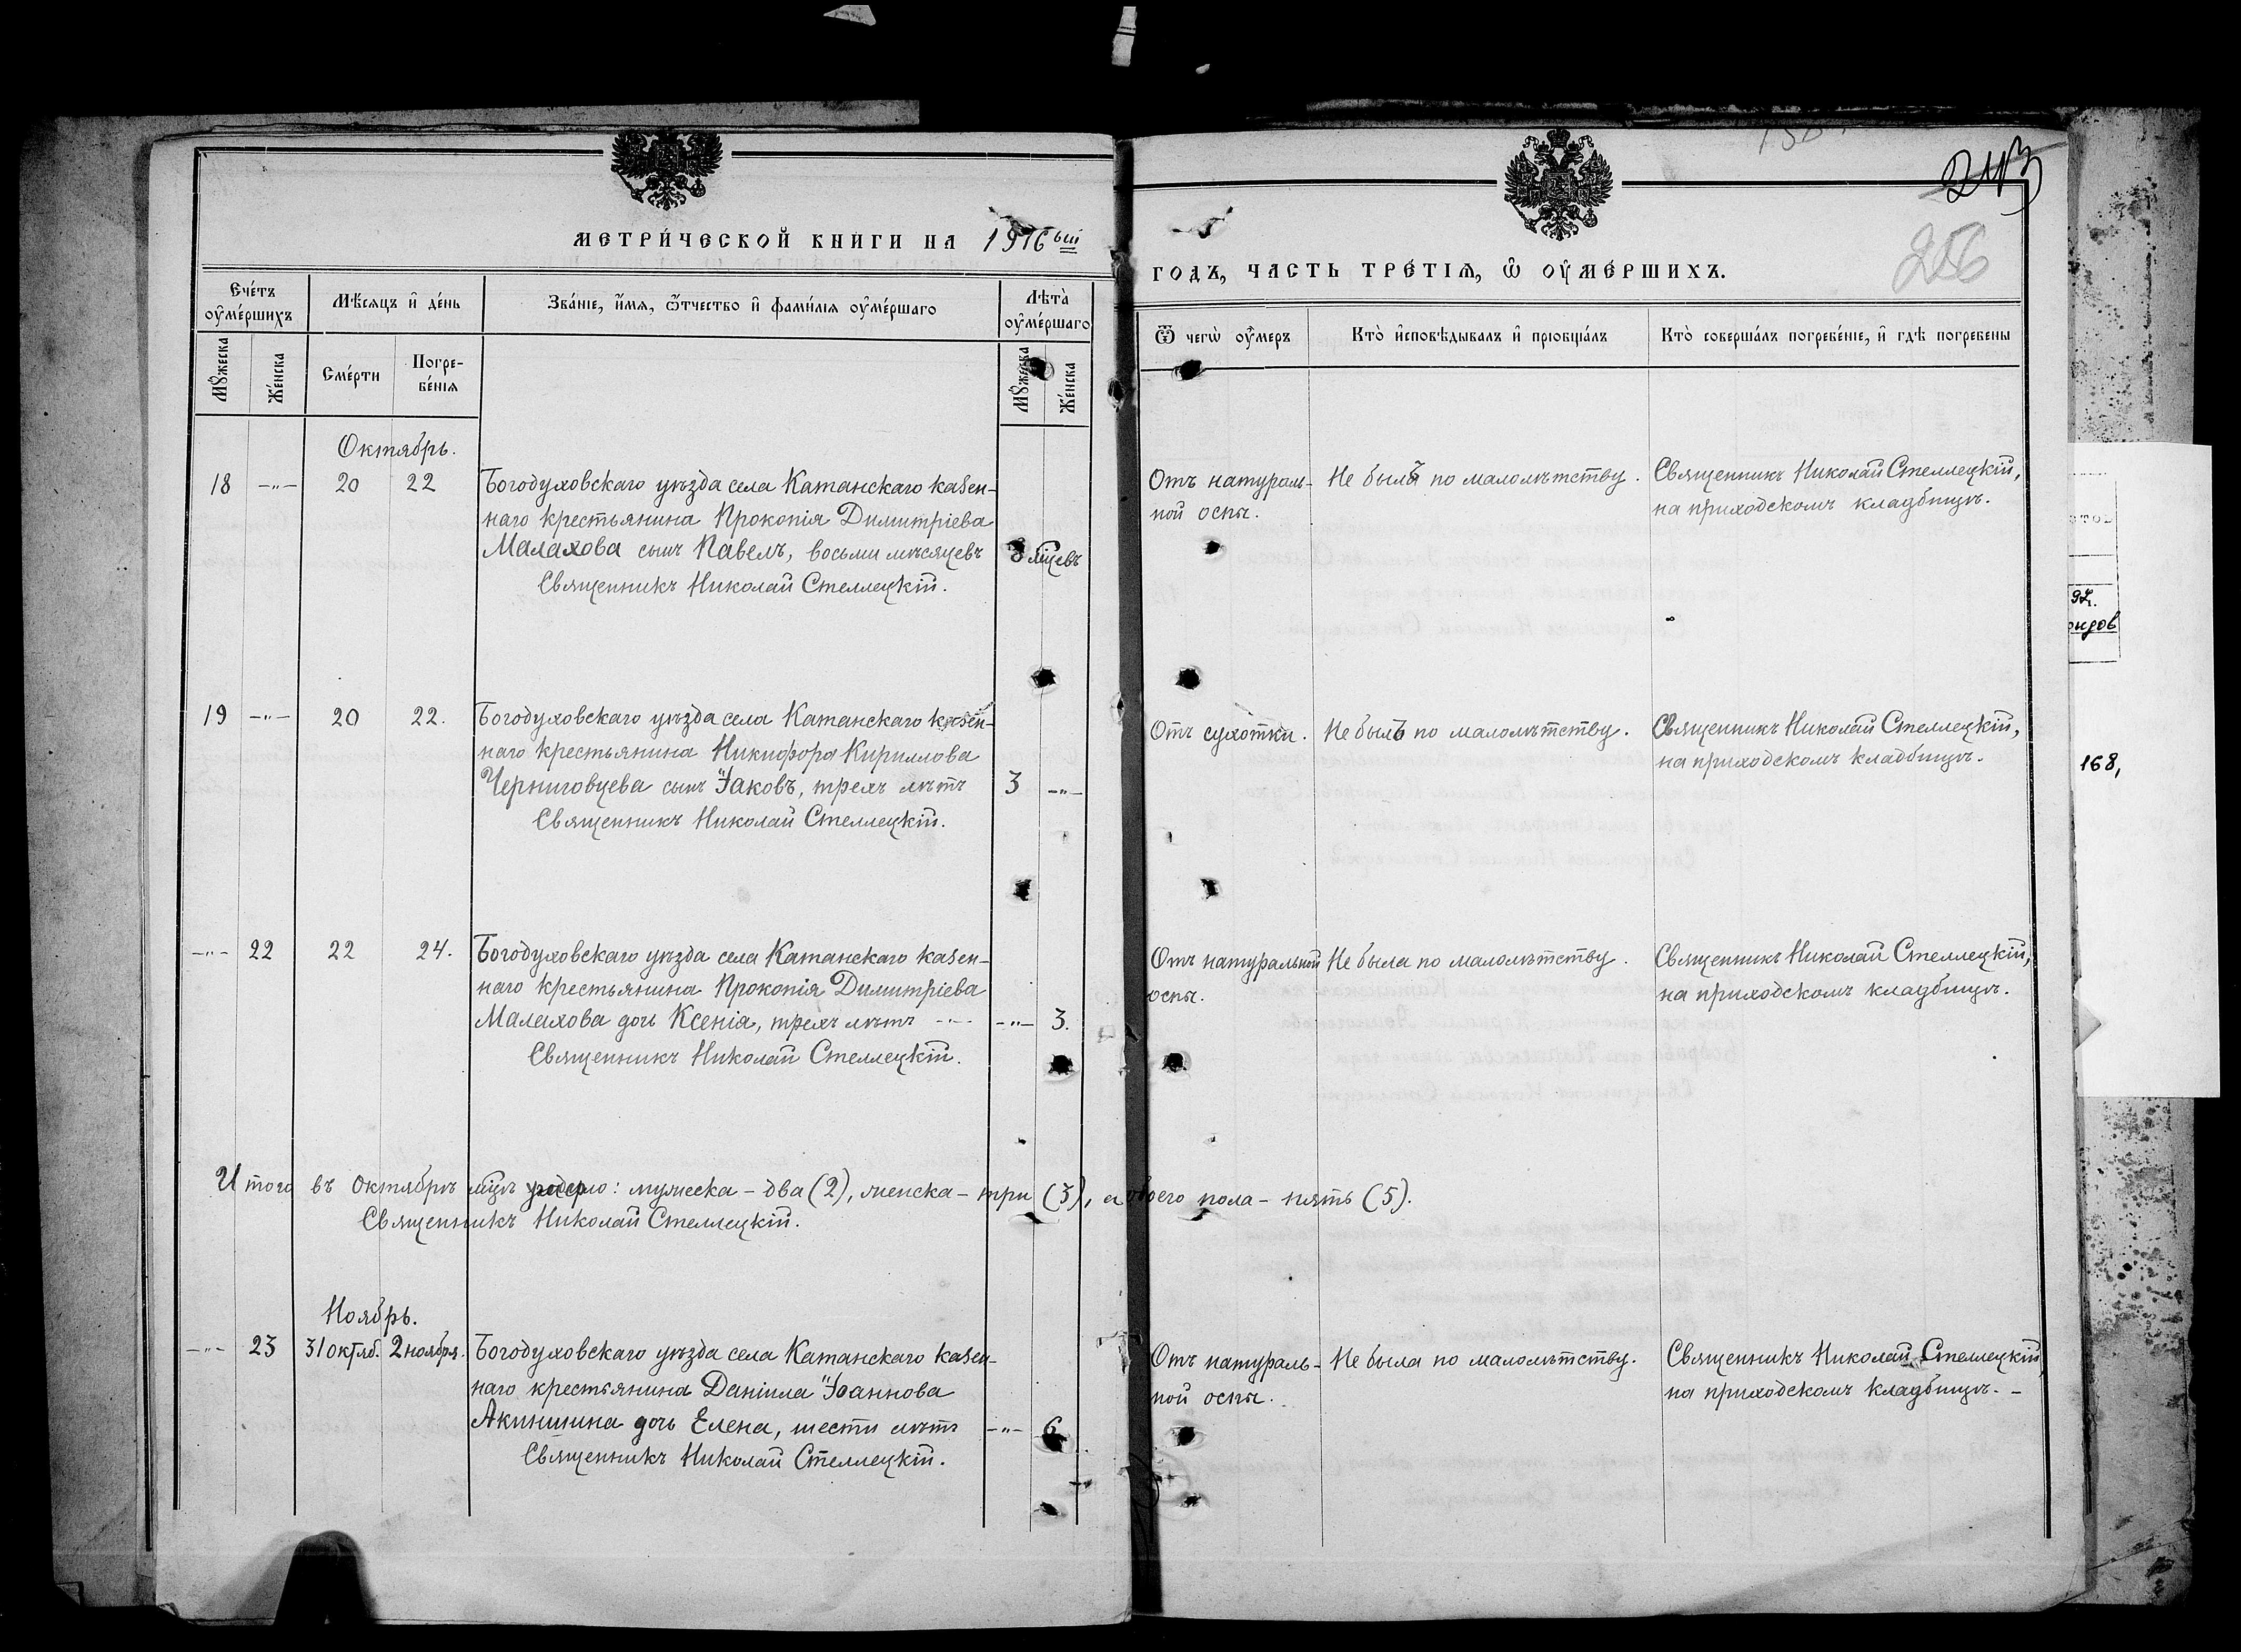 МЕТРИ́ЧЕСКОЙ КНИГИ НА 1916ый
ГОДЪ, ЧАСТЬ ТРЕ́ТІѦ, Ѡ ОУ҆МЕ́РШИХЪ.
243
256
Сче́тъ оу҆ме́ршихъ
Мѣ́сяцъ и҆ де́нь
Зва́ніе, и҆́мя, ѻ҆́тчество и҆ фами́лія оу҆ме́ршаго
Лѣта̀ оу҆ме́ршаго
Ѿ чегѡ̀ оу҆́меръ
Кто̀ и҆сповѣ́дывалъ и҆ пріобща́лъ
Кто̀ соверша́лъ погребе́ніе, и҆ гдѣ̀ погребены
Мꙋ́жеска
Же́нска
Сме́рти
Погре-
бе́нія
Мꙋ́жеска
Же́нска
Октябрь.
18 -"- 20 22
Богодуховскаго уѣзда села Катанскаго казен-
наго крестьянина Прокопія Димитріева
Малахова сынъ Павелъ, восьми мѣсяцевъ
8 мцевъ
Священникъ Николай Стеллецкій.
Отъ натураль-
ной оспы.
Не былъ по малолѣтству.
Священникъ Николай Стеллецкій,
на приходскомъ кладбищѣ.
19 -"- 20 22.
Богодуховскаго уѣзда села Катанскаго казен-
наго крестьянина Никифора Кириллова
Черниговцева сынъ Іаковъ, трехъ лѣтъ
3 -"-
Священникъ Николай Стеллецкій.
Отъ сухотки.
Не былъ по малолѣтству.
Священникъ Николай Стеллецкій,
на приходскомъ кладбищѣ.
-"- 22 22 24.
Богодуховскаго уѣзда села Катанскаго казен-
наго крестьянина Прокопія Димитріева
Малахова дочь Ксенія, трехъ лѣтъ -"-
-"- 3.
Священникъ Николай Стеллецкій.
Отъ натуральной
оспы.
Не была по малолѣтству.
Священникъ Николай Стеллецкій,
на приходскомъ кладбищѣ.
Итого въ Октябрѣ мцѣ умерло: мужеска - два (2), женска - три (3), а обоего пола - пять (5).
Священникъ Николай Стеллецкій.
Ноябрь.
-"- 23 31 октяб. 2 ноября.
Богодуховскаго уѣзда села Катанскаго казен-
наго крестьянина Даніила Іоаннова
Акиншина дочь Елена, шести лѣтъ
-"- 6
Священникъ Николай Стеллецкій.
Отъ натураль-
ной оспы.
Не была по малолѣтству.
Священникъ Николай Стеллецкій,
на приходскомъ кладбищѣ. -
168,